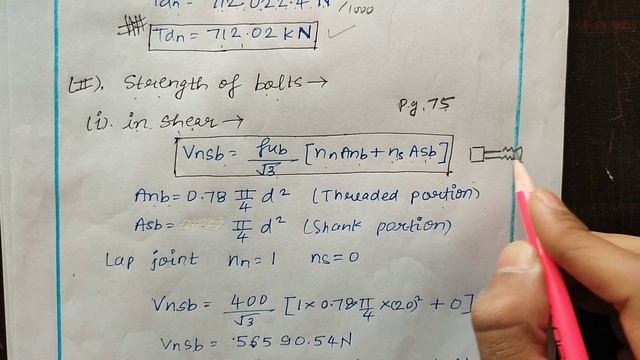 Tdn = 712.022.4 N /1000
Tdn = 712.02 KN
(II). Strength of bolts →
Pg. 75
(i). in shear →
Vnsb = fub/√3 [nn Anb + ns Asb]
Anb = 0.78 π/4 d² (Threaded portion)
Asb = π/4 d² (Shank portion)
Lap joint nn = 1 ns = 0
Vnsb = 400/√3 [1 × 0.78 π/4 × (20)² + 0]
Vnsb = 56590.54 N